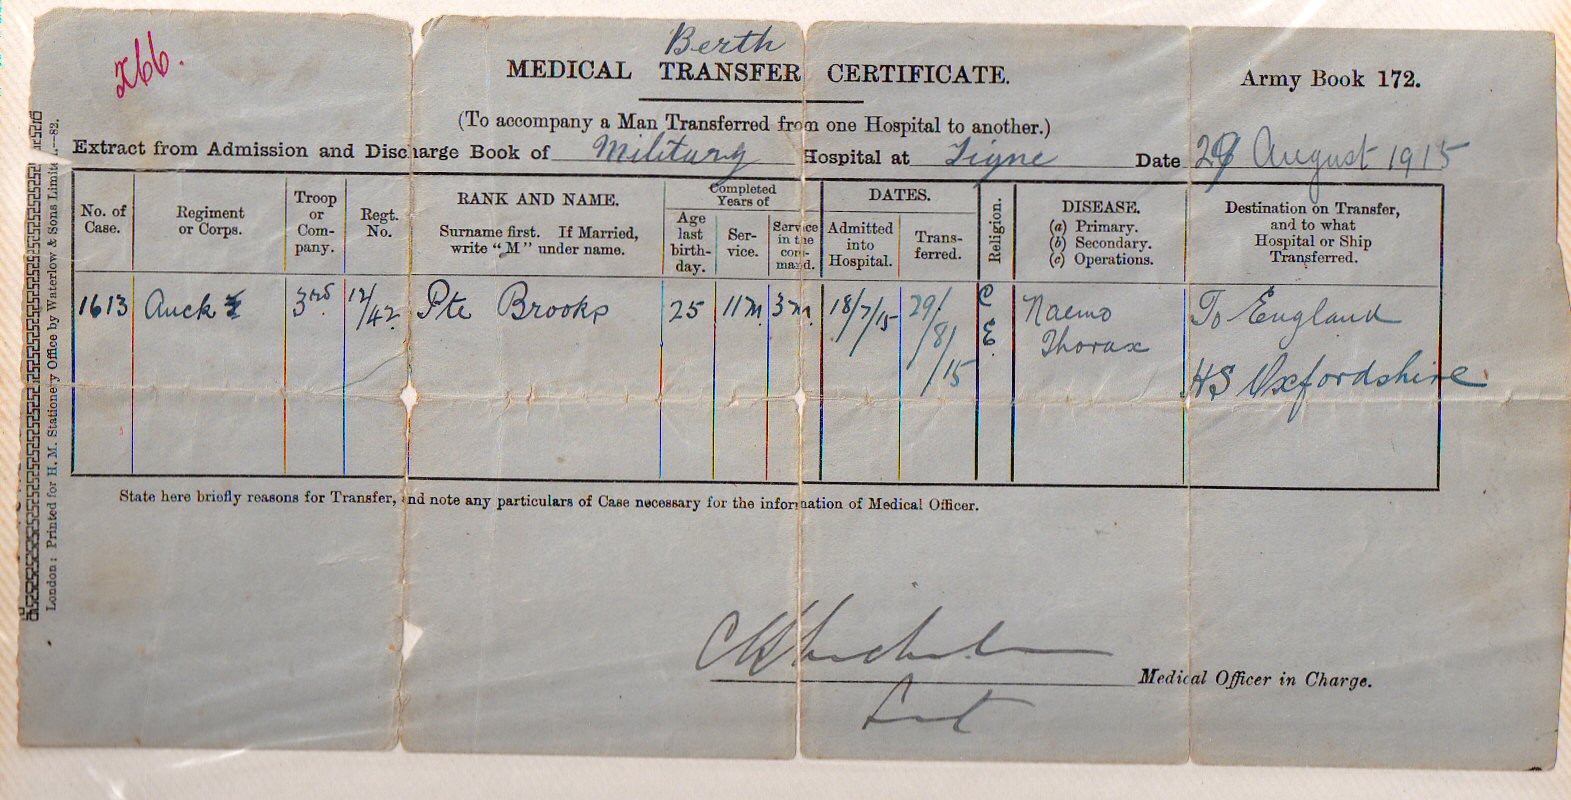 266.
Berth
MEDICAL TRANSFER CERTIFICATE.
Army Book 172.
(To accompany a Man Transferred from one Hospital to another.)
Extract from Admission and Discharge Book of Military Hospital at Tigne Date 29 August 1915
No. of Case.
Regiment or Corps.
Troop or Com-pany.
Regt. No.
RANK AND NAME.
Surname first. If Married, write "M" under name.
Completed Years of
Age last birth-day.
Ser-vice.
Service in the com-mand.
DATES.
Admitted into Hospital.
Trans-ferred.
Religion.
DISEASE.
(a) Primary.
(b) Secondary.
(c) Operations.
Destination on Transfer, and to what Hospital or Ship Transferred.
1613 Auck 3rd 12/42 Pte Brooks 25 11m 3m 18/7/15 29/8/15 C E. Naemo Thorax To England
HS Oxfordshire
State here briefly reasons for Transfer, and note any particulars of Case necessary for the information of Medical Officer.
Medical Officer in Charge.
London: Printed for H.M. Stationery Office by Waterlow & Sons Limited.—82.